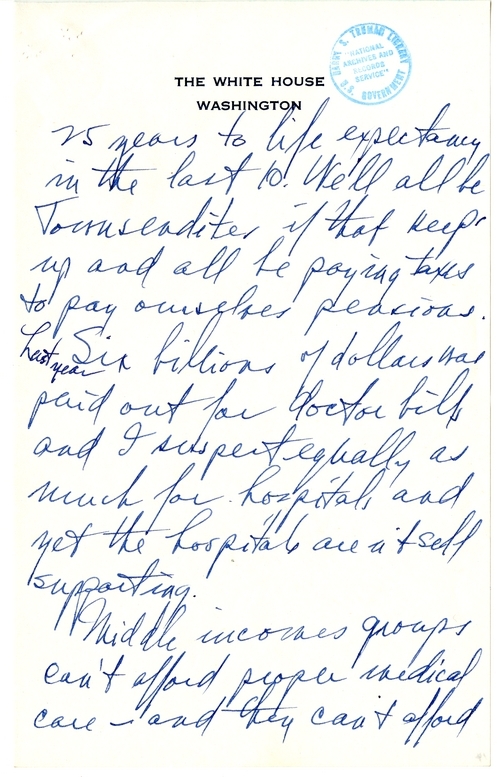 HARRY S. TRUMAN LIBRARY
"NATIONAL
ARCHIVES AND
RECORDS
SERVICE"
U.S. GOVERNMENT
THE WHITE HOUSE
WASHINGTON
25 years to life expectancy
in the last 10. We'll all be
Townsendites if that keeps
up and all be paying taxes
to pay ourselves pensions.
Last year Six billions of dollars was
paid out for doctor bills
and I suspect equally as
much for hospitals and
yet the hospitals aren't self
supporting.
Middle incomes groups
can't afford proper medical
care – and they can't afford